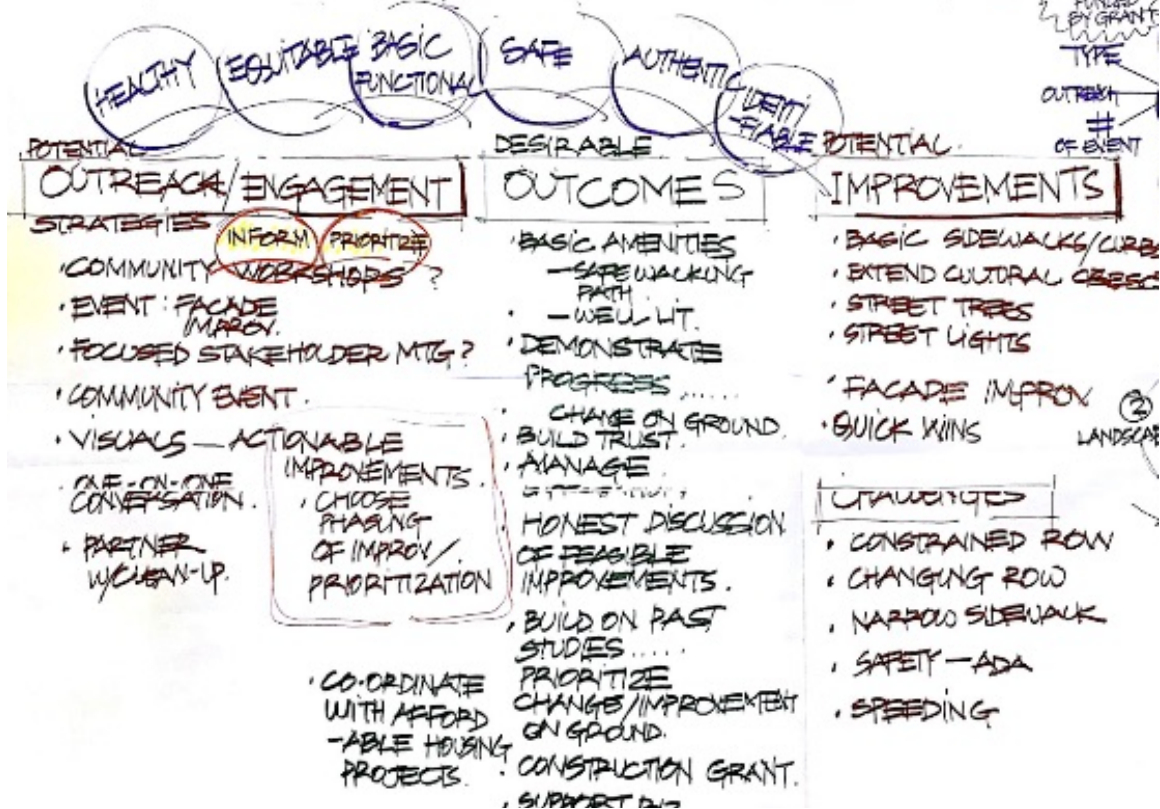 FUNDED
BY GRANT
TYPE
OUTREACH
#
OF EVENT
HEALTHY
EQUITABLE
BASIC
FUNCTIONAL
SAFE
AUTHENTIC
IDENTI
-FIABLE
POTENTIAL
OUTREACH/ENGAGEMENT
STRATEGIES
INFORM
PRIORITIZE
• COMMUNITY WORKSHOPS ?
• EVENT : FACADE
IMPROV.
• FOCUSED STAKEHOLDER MTG ?
• COMMUNITY EVENT.
• VISUALS — ACTIONABLE
IMPROVEMENTS.
• CHOOSE
PHASING
OF IMPROV/
PRIORITIZATION
ONE-ON-ONE
CONVERSATION.
• PARTNER
W/CLEAN-UP.
• CO-ORDINATE
WITH AFFORD
-ABLE HOUSING
PROJECTS.
DESIRABLE
OUTCOMES
• BASIC AMENITIES
— SAFE WALKING
PATH.
• — WELL LIT.
• DEMONSTRATE
PROGRESS .....
ON GROUND.
• BUILD TRUST.
• MANAGE
HONEST DISCUSSION
OF FEASIBLE
IMPROVEMENTS.
• BUILD ON PAST
STUDIES .....
PRIORITIZE
CHANGE/IMPROVEMENT
ON GROUND.
• CONSTRUCTION GRANT.
• SUPPORT BIZ
POTENTIAL
IMPROVEMENTS
• BASIC SIDEWALKS/CURBS
• EXTEND CULTURAL
• STREET TREES
• STREET LIGHTS
• FACADE IMPROV
• QUICK WINS
②
LANDSCA
CHALLENGES
• CONSTRAINED ROW
• CHANGING ROW
• NARROW SIDEWALK
• SAFETY — ADA
• SPEEDING